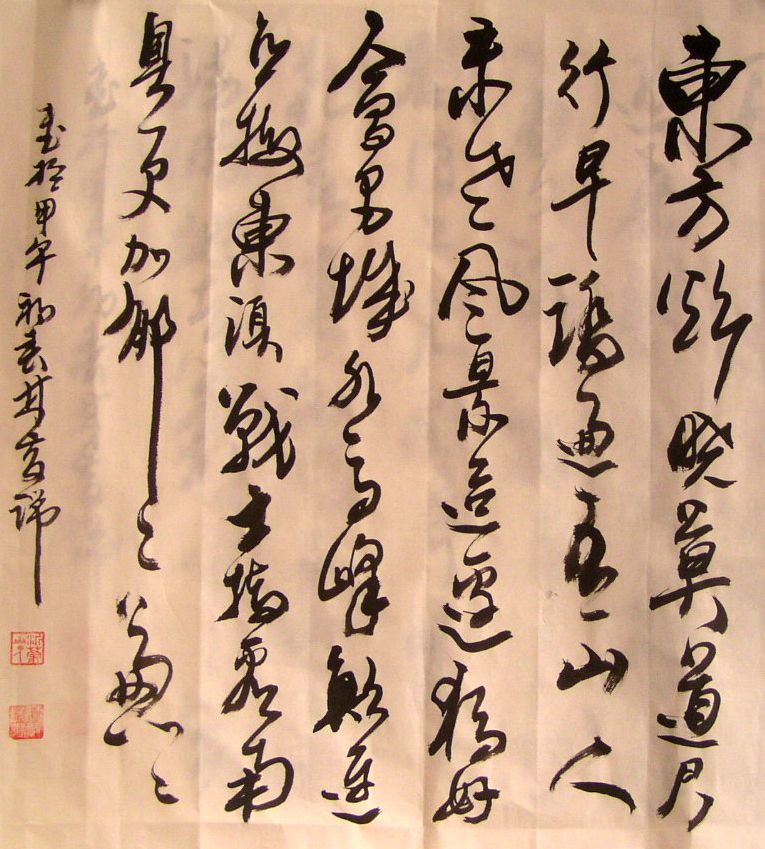 東方欲曉莫道君
行早踏遍青山人
未老風景這邊獨好
會昌城外高峰顛連
直接東溟戰士指看南
粵更加郁々葱々
書於甲午初春